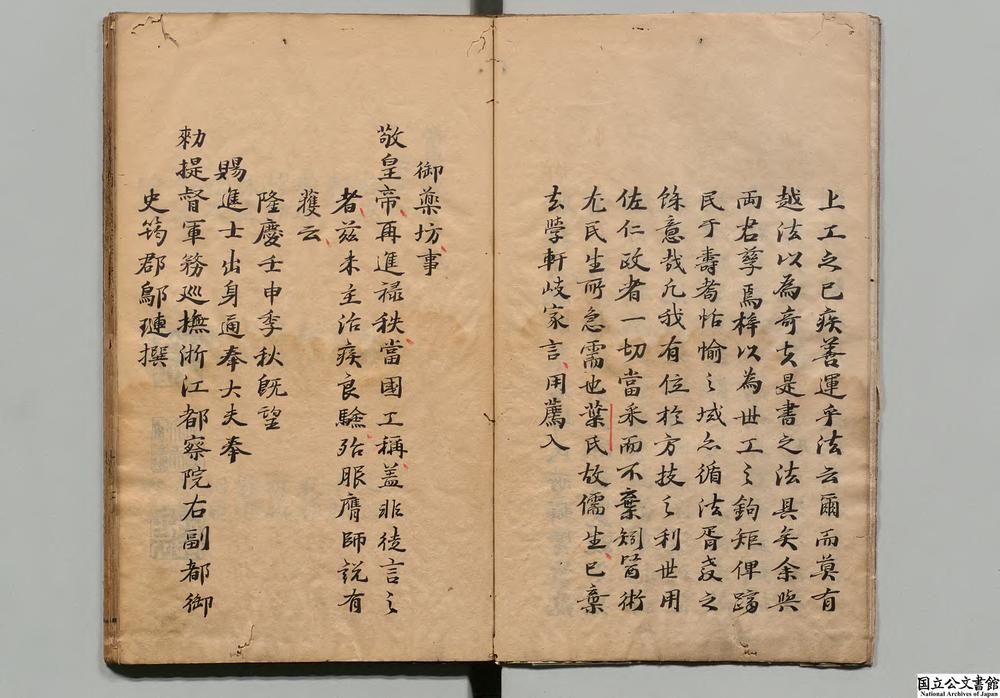 上工之已疾善運乎法云爾而莫有
越法以為奇者是書之法具矣余與
両君孳焉梓以為丗工之鉤矩俾躋
民于壽耈恬愉之域亦循法胥救之
餘意哉凡我有位於方技之利世用
佐仁政者一切當采而不棄矧醫術
尤民生所急需也葉氏故儒生已棄
去學軒岐家言用薦入
御藥坊事
敬皇帝再進禄秩當國工稱盖非徒言之
者茲未主治疾良驗殆服膺師説有
獲云
隆慶壬申季秋既望
賜進士出身通奉大夫奉
勅提督軍務巡撫浙江都察院右副都御
史筠郡鄔璉撰
国立公文書館
National Archives of Japan